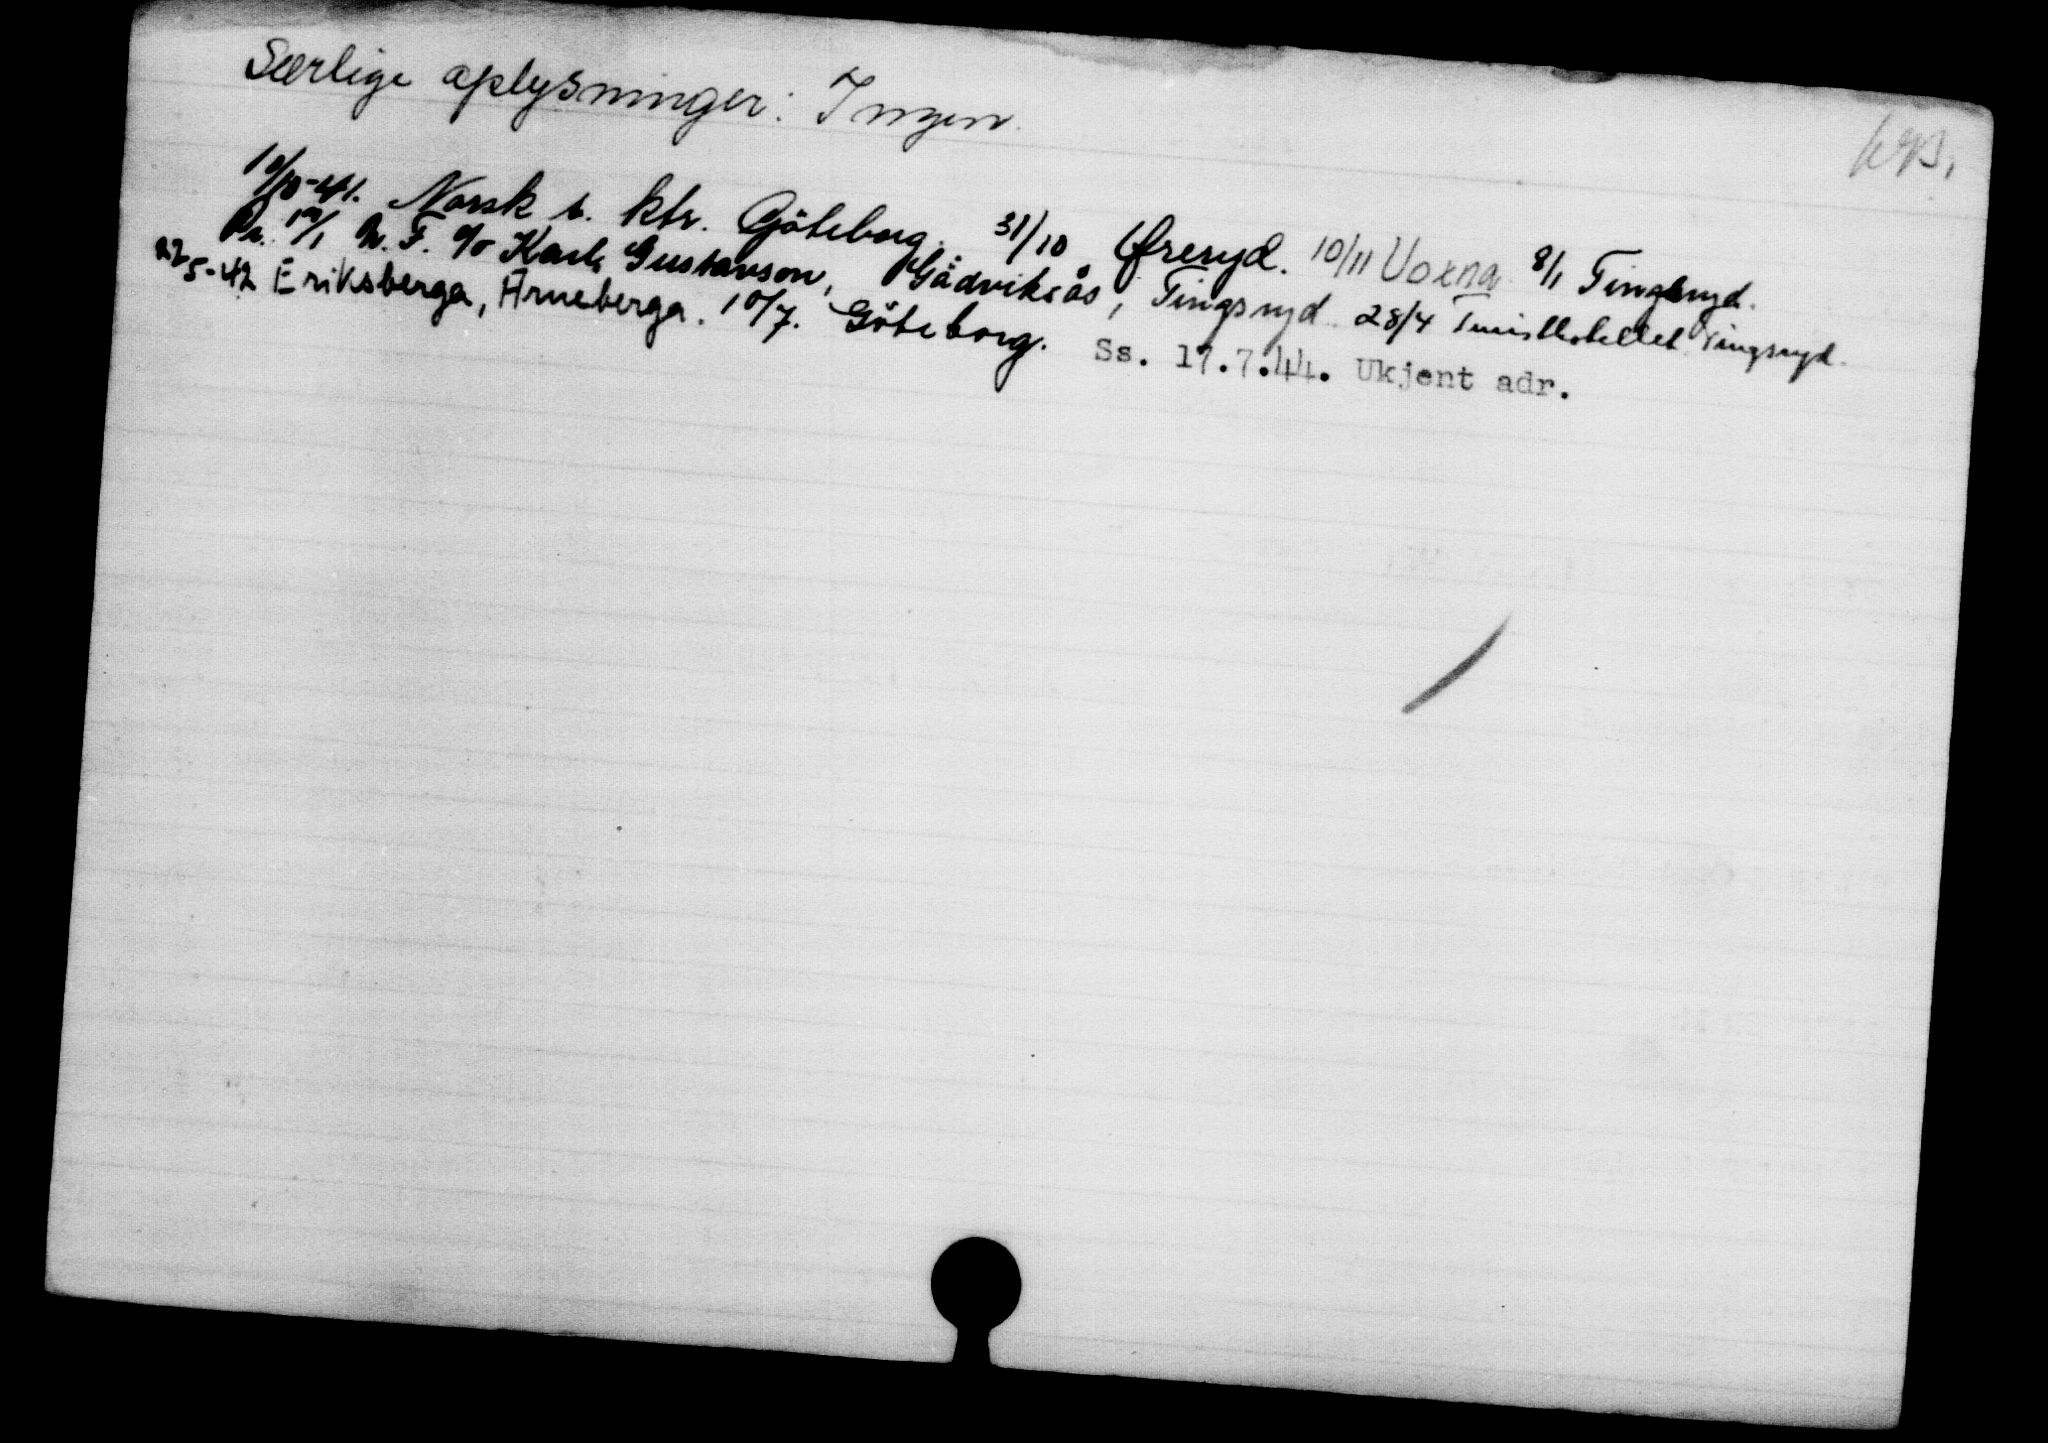 Særlige oplysninger: Ingen.
10/10-41. Norsk s. ktr. Göteborg. 31/10 Øreryd. 10/11 Voxna 8/1 Tingsryd.
Pr. 19/1 N. F. c/o Karl Gustavson, Gädviksås, Tingsryd. 28/4 Turisthotellet Tingsryd.
22/5-42 Eriksberga, Ärneberga. 10/7. Göteborg. Ss. 17.7.44. Ukjent adr.